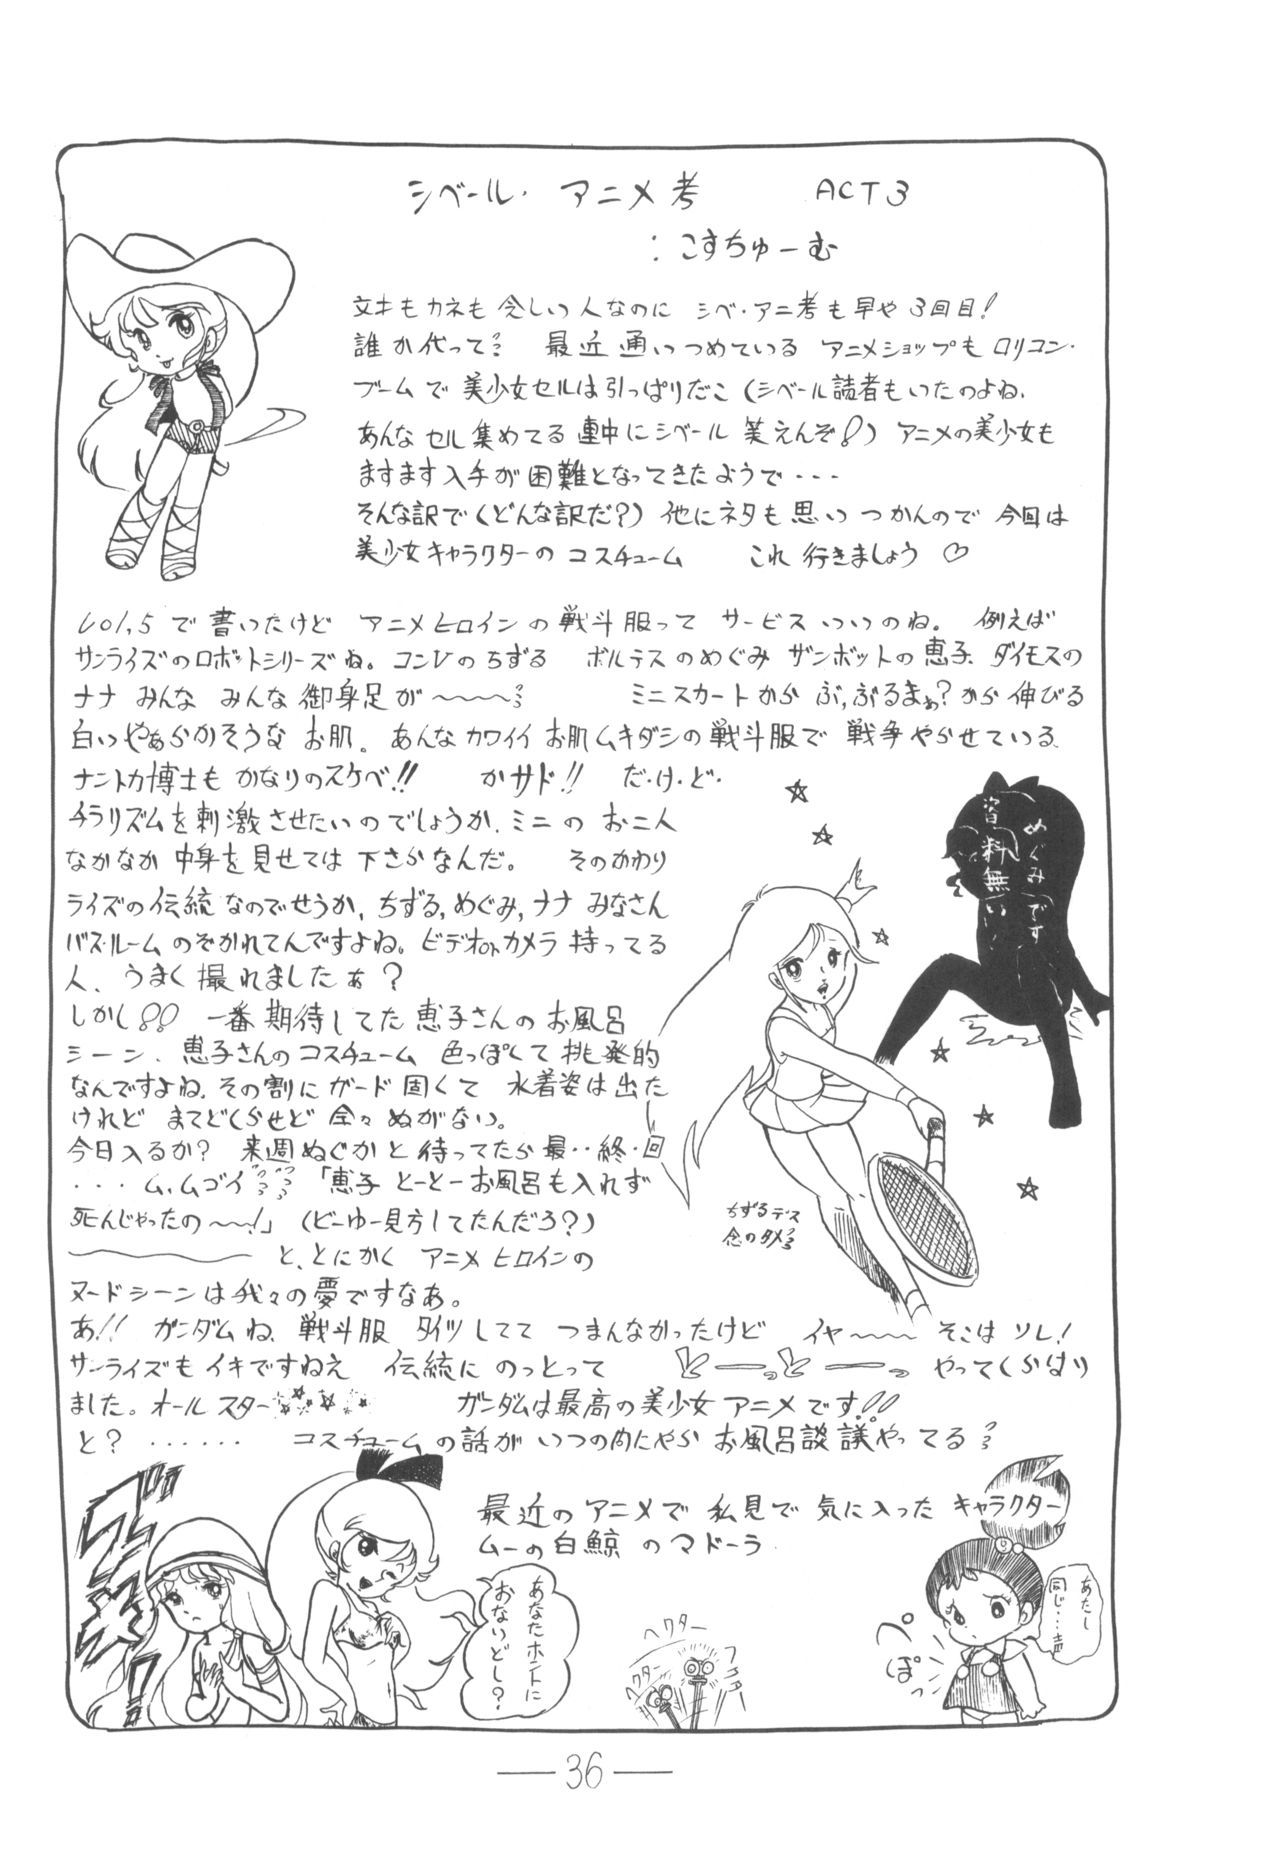 シベール・アニメ考 ACT3
：こすちゅーむ
文才もカネも乏しい人なのに シベ・アニ考も早や3回目！
誰か代って 最近通いつめている アニメショップも ロリコン・
ブームで 美少女セルは引っぱりだこ（シベール読者もいたのよね、
あんな セル 集めてる 連中にシベール 笑えんぞ！）アニメの美少女も
ますます入手が 困難となってきたようで・・・
そんな訳で（どんな訳だ？）他にネタも思いつかんので 今回は
美少女キャラクターの コスチューム これ 行きましょう ♡
Vol,5 で 書いたけど アニメヒロインの 戦斗服って サービスいいのね。 例えば
サンライズのロボットシリーズね。コンVのちずる ボルテスのめぐみ ザンボットの恵子、ダイモスの
ナナ みんな みんな 御身足が〜〜〜 ミニスカートから ぶ,ぶるまぁ？から 伸びる
白いやぁらかそうな お肌。 あんなカワイイ お肌ムキダシの戦斗服で 戦争やらせている、
ナントカ博士も かなりのスケベ!! かサド!! だ・け・ど・
チラリズムを刺激させたいのでしょうか、ミニの お二人
なかなか 中身を見せては 下さらなんだ。 そのかわり
ライズの伝統なのでせうか, ちずる,めぐみ,ナナ みなさん
バス・ルーム のぞかれてんですよね。ビデオorカメラ 持ってる
人、うまく 撮れましたぁ？
しかし!! 一番期待してた 恵子さんのお風呂
シーン、恵子さんのコスチューム 色っぽくて 挑発的
なんですよね、その割に ガード固くて 水着姿は出た
けれど まてどくらせど 全々 ぬがない。
今日入るか？ 来週ぬぐかと 待ってたら 最・・終・回
・・・ム,ムゴイ 「恵子 とーとーお風呂も入れず
死んじゃったの〜〜！」（どーゆー見方してたんだろ？）
〜〜〜〜 と、とにかく アニメヒロインの
ヌードシーンは我々の夢ですなあ。
あ!! ガンダムね、戦斗服 タイツしてて つまんなかったけど イヤ〜〜〜 そこは ソレ！
サンライズも イキですねえ 伝統に のっとって とーーっとーーっ やってくらはり
ました。オールスター ガンダムは最高の美少女アニメです!!
と？ ・・・・・・ コスチュームの話が いつの間にやら お風呂談議やってる
最近のアニメで 私見で 気に入った キャラクター
ムーの白鯨 の マドーラ
めぐみです
資料無い
ちずるデス
念のタメ
あなたホントに
おないどし？
ヘクター
ヘクター
あたし
同じ・・・
ぺ
ぽっ
36